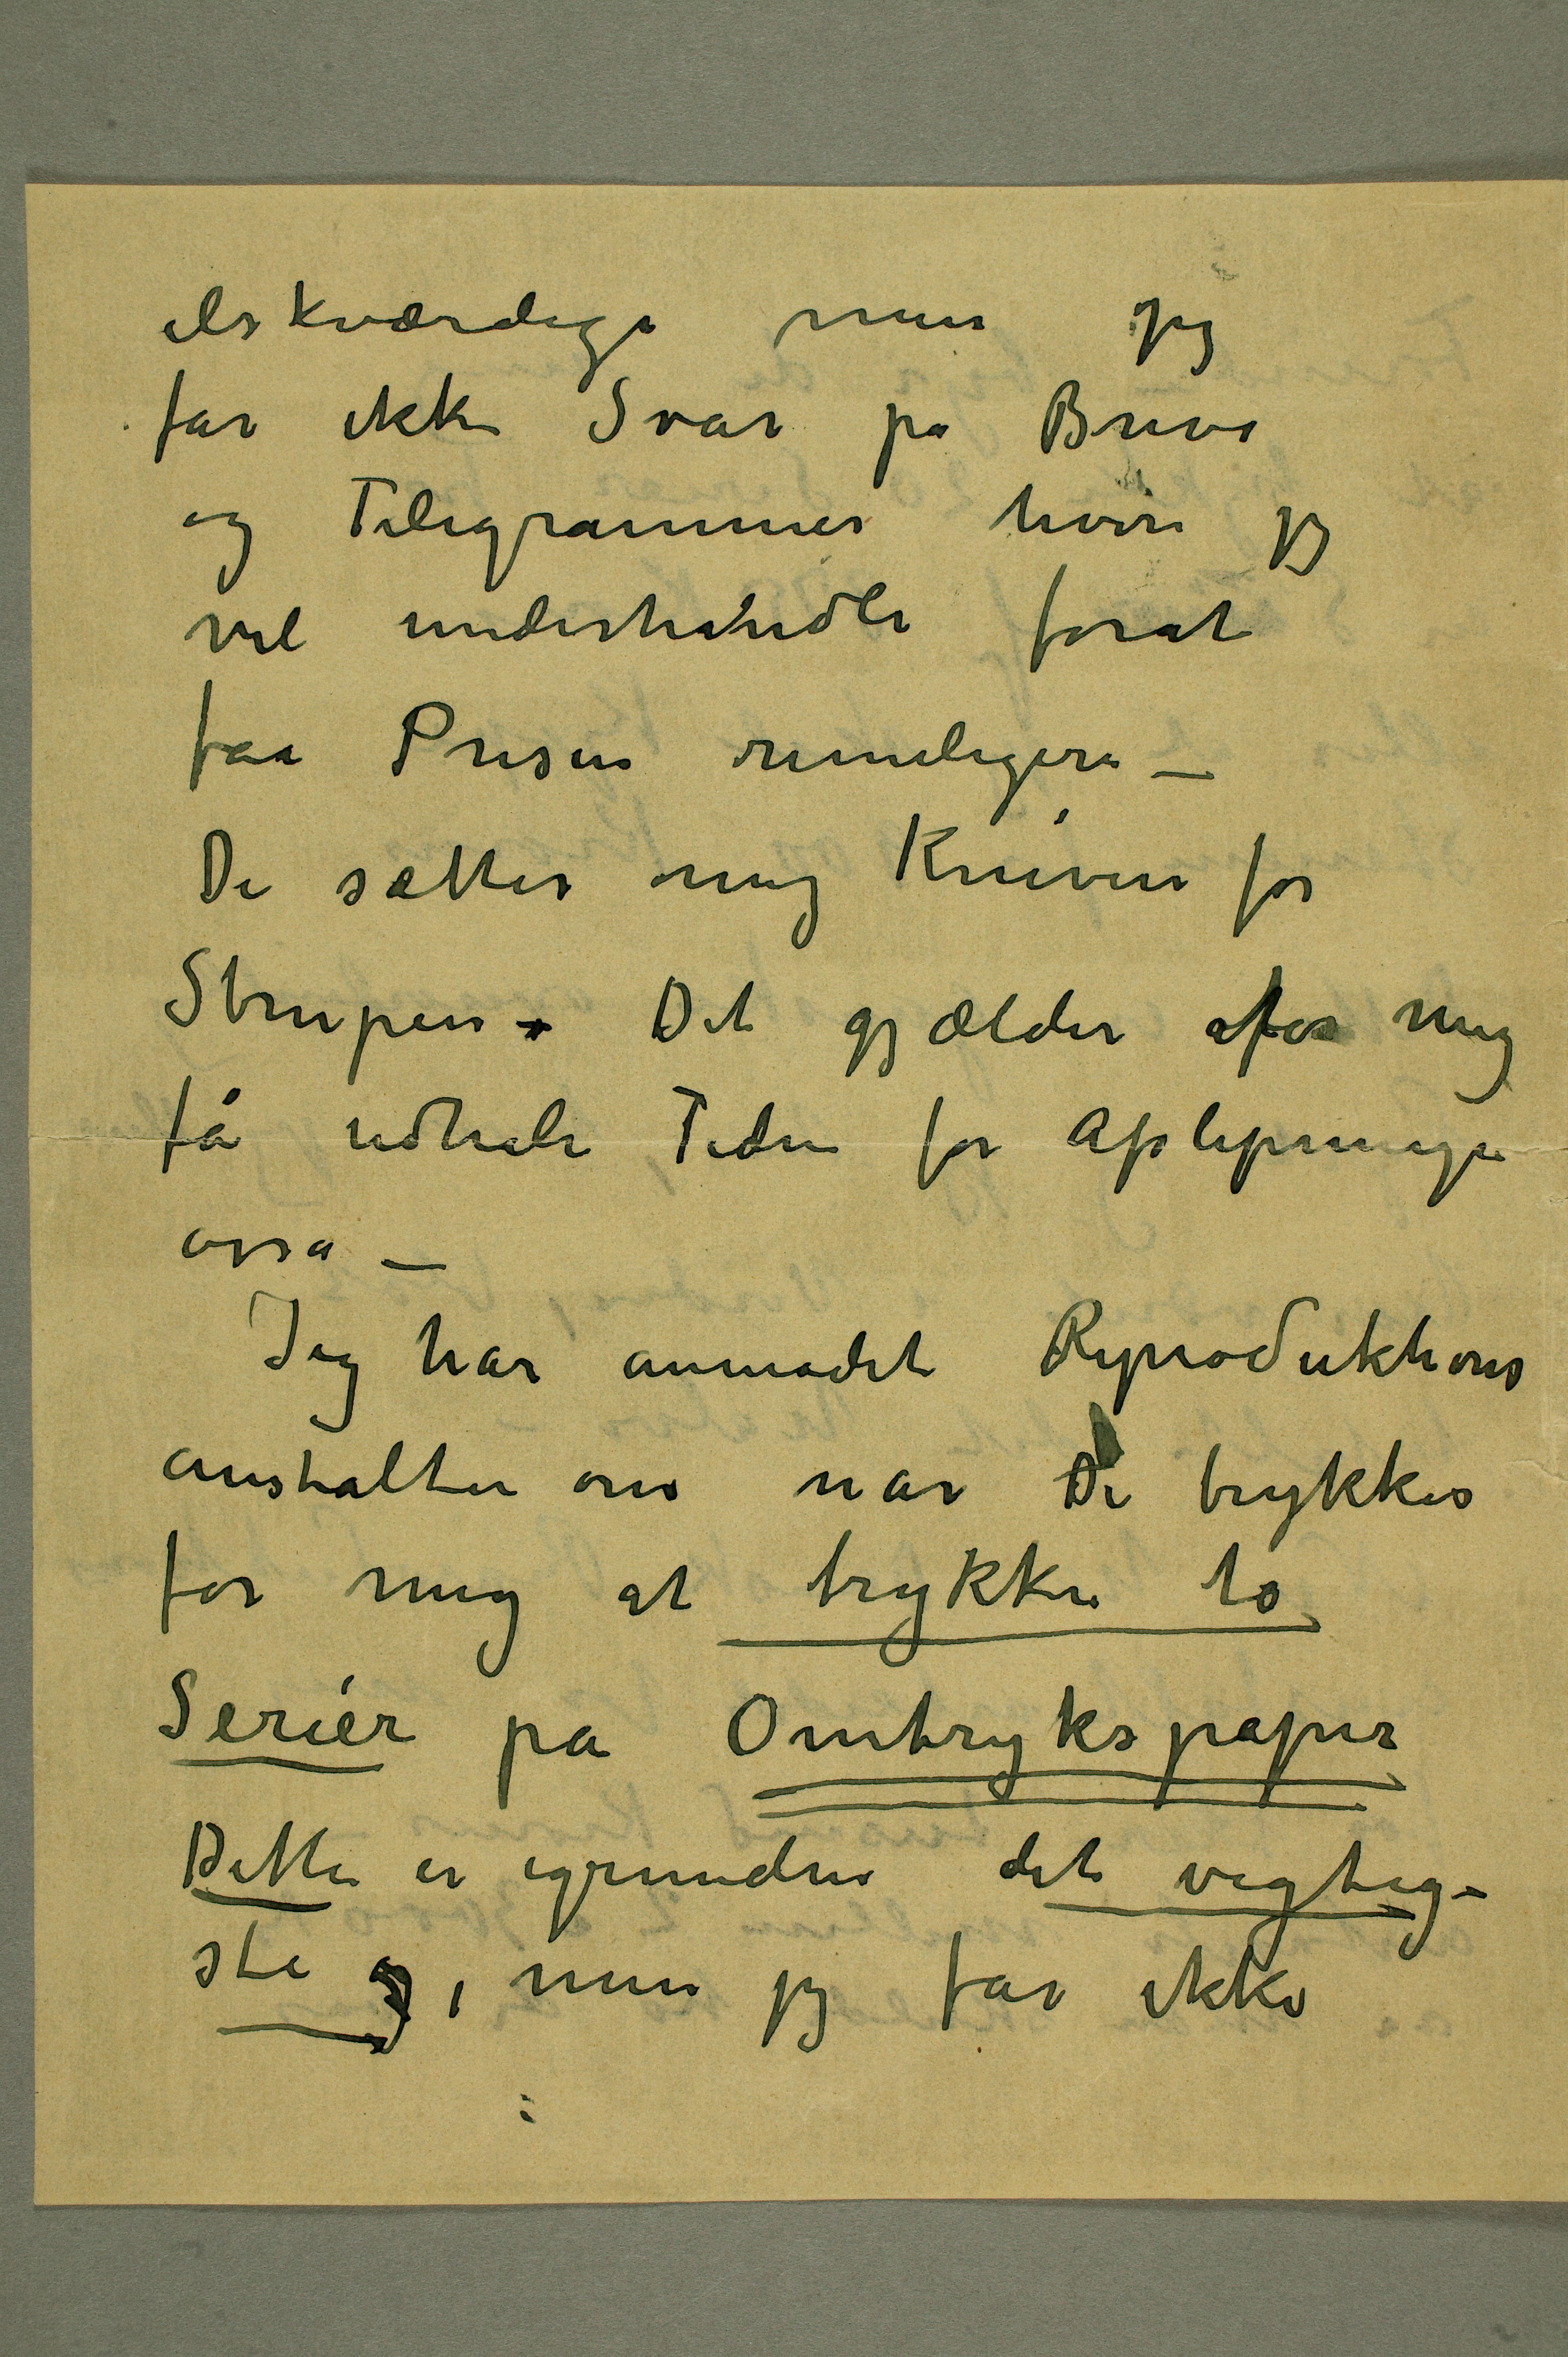 elskværdige men jeg
får ikke Svar på Breve
og Telegrammer hvori jeg
vil underhandle forat
faa Prisen rimeligere –
De sætter mig Kniven for
Strupen. Det gjælder for mig
få udhale Tiden for
osså –
Jeg har anmodet Reproduktions
anstalten om når De trykkes
for mig at trykke to
Seriér på Omtrykspapir
Dette er igrunden det vigtig-
ste, men jeg får ikke